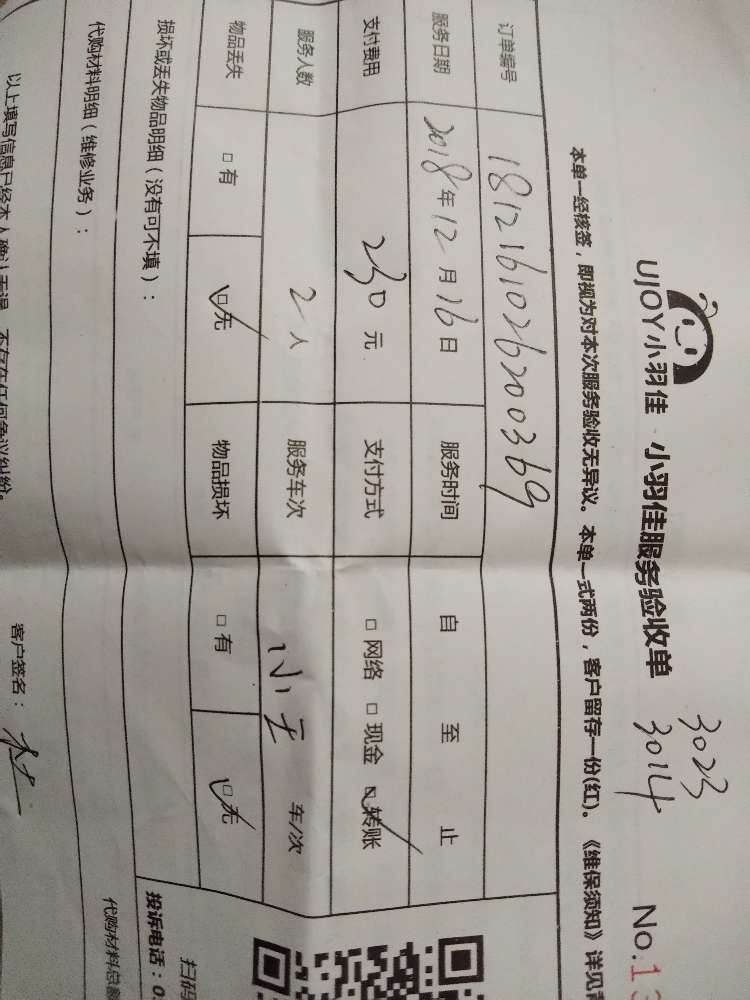 UJOY小羽佳 小羽佳服务验收单
3023
3014
No.1
本单一经核签，即视为对本次服务验收无异议。本单一式两份，客户留存一份(红)。《维保须知》详见
订单编号 181216102620​0369
服务日期 2018年12月16日 服务时间 自 至 止
支付费用 230元 支付方式 □网络 □现金 ☑转账
服务人数 2人 服务车次 小土 车/次
物品丢失 □有 ☑无 物品损坏 □有 ☑无
损坏或丢失物品明细（没有可不填）：
代购材料明细（维修业务）：
代购材料总
以上填写信息已经本人确认无误，不存在任何争议纠纷。
客户签名：
投诉电话：0
扫码